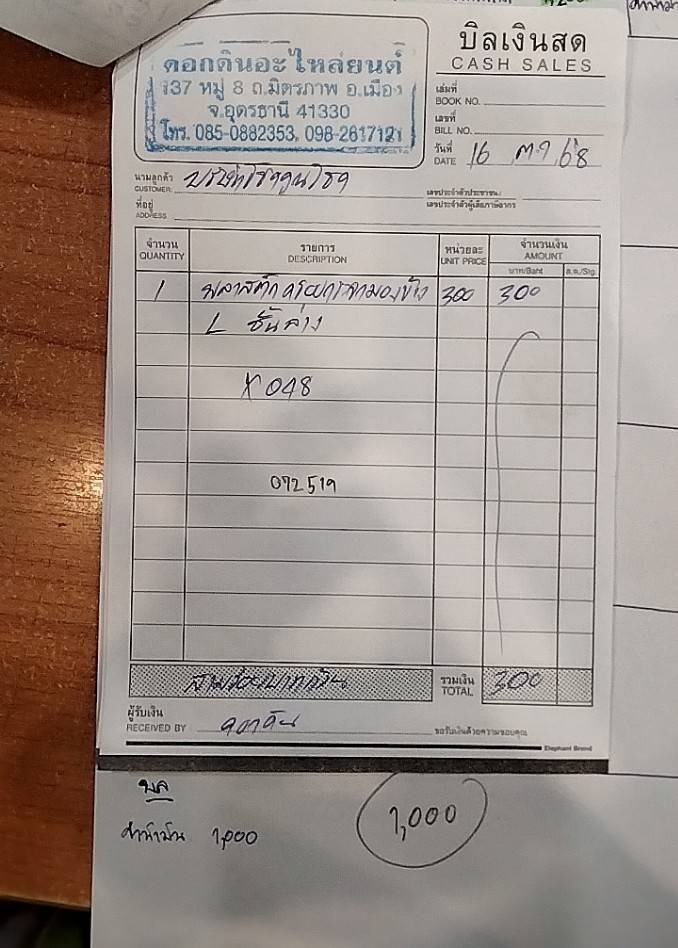 บิลเงินสด
CASH SALES
ดอกดินอะไหล่ยนต์
137 หมู่ 8 ถ.มิตรภาพ อ.เมือง
จ.อุดรธานี 41330
โทร. 085-0882353, 098-2617121
เล่มที่
BOOK NO.
เลขที่
BILL NO.
วันที่
DATE 16 ต.ค. 68
นามลูกค้า
CUSTOMER บริษัท
เลขประจำตัวประชาชน
ที่อยู่
ADDRESS
เลขประจำตัวผู้เสียภาษีอากร
จำนวน รายการ หน่วยละ จำนวนเงิน
QUANTITY DESCRIPTION UNIT PRICE AMOUNT
บาท/Baht ส.ต./Stg.
1 พลาสติกครอบกระจกมองข้าง 300 300
L ชิ้นล่าง
X 048
072519
สามร้อยบาทถ้วน รวมเงิน 300
TOTAL
ผู้รับเงิน
RECEIVED BY ดอกดิน
ขอรับเงินด้วยความขอบคุณ
Elephant Brand
ค่าน้ำมัน 1,000
1,000